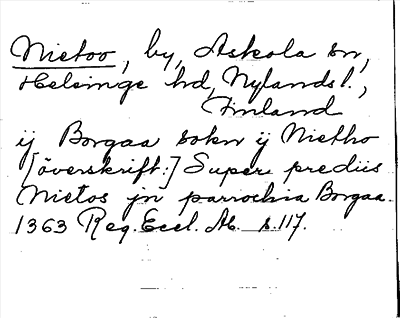 Nietoo, by, Askola sn,
Helsinge hd, Nylandsl.,
Finland
ij Borgaa sokn ij Nietho
[överskrift:] Super prediis
Nietos jn parrochia Borgaa.
1363 Reg. Eccl. Ab. s.117.